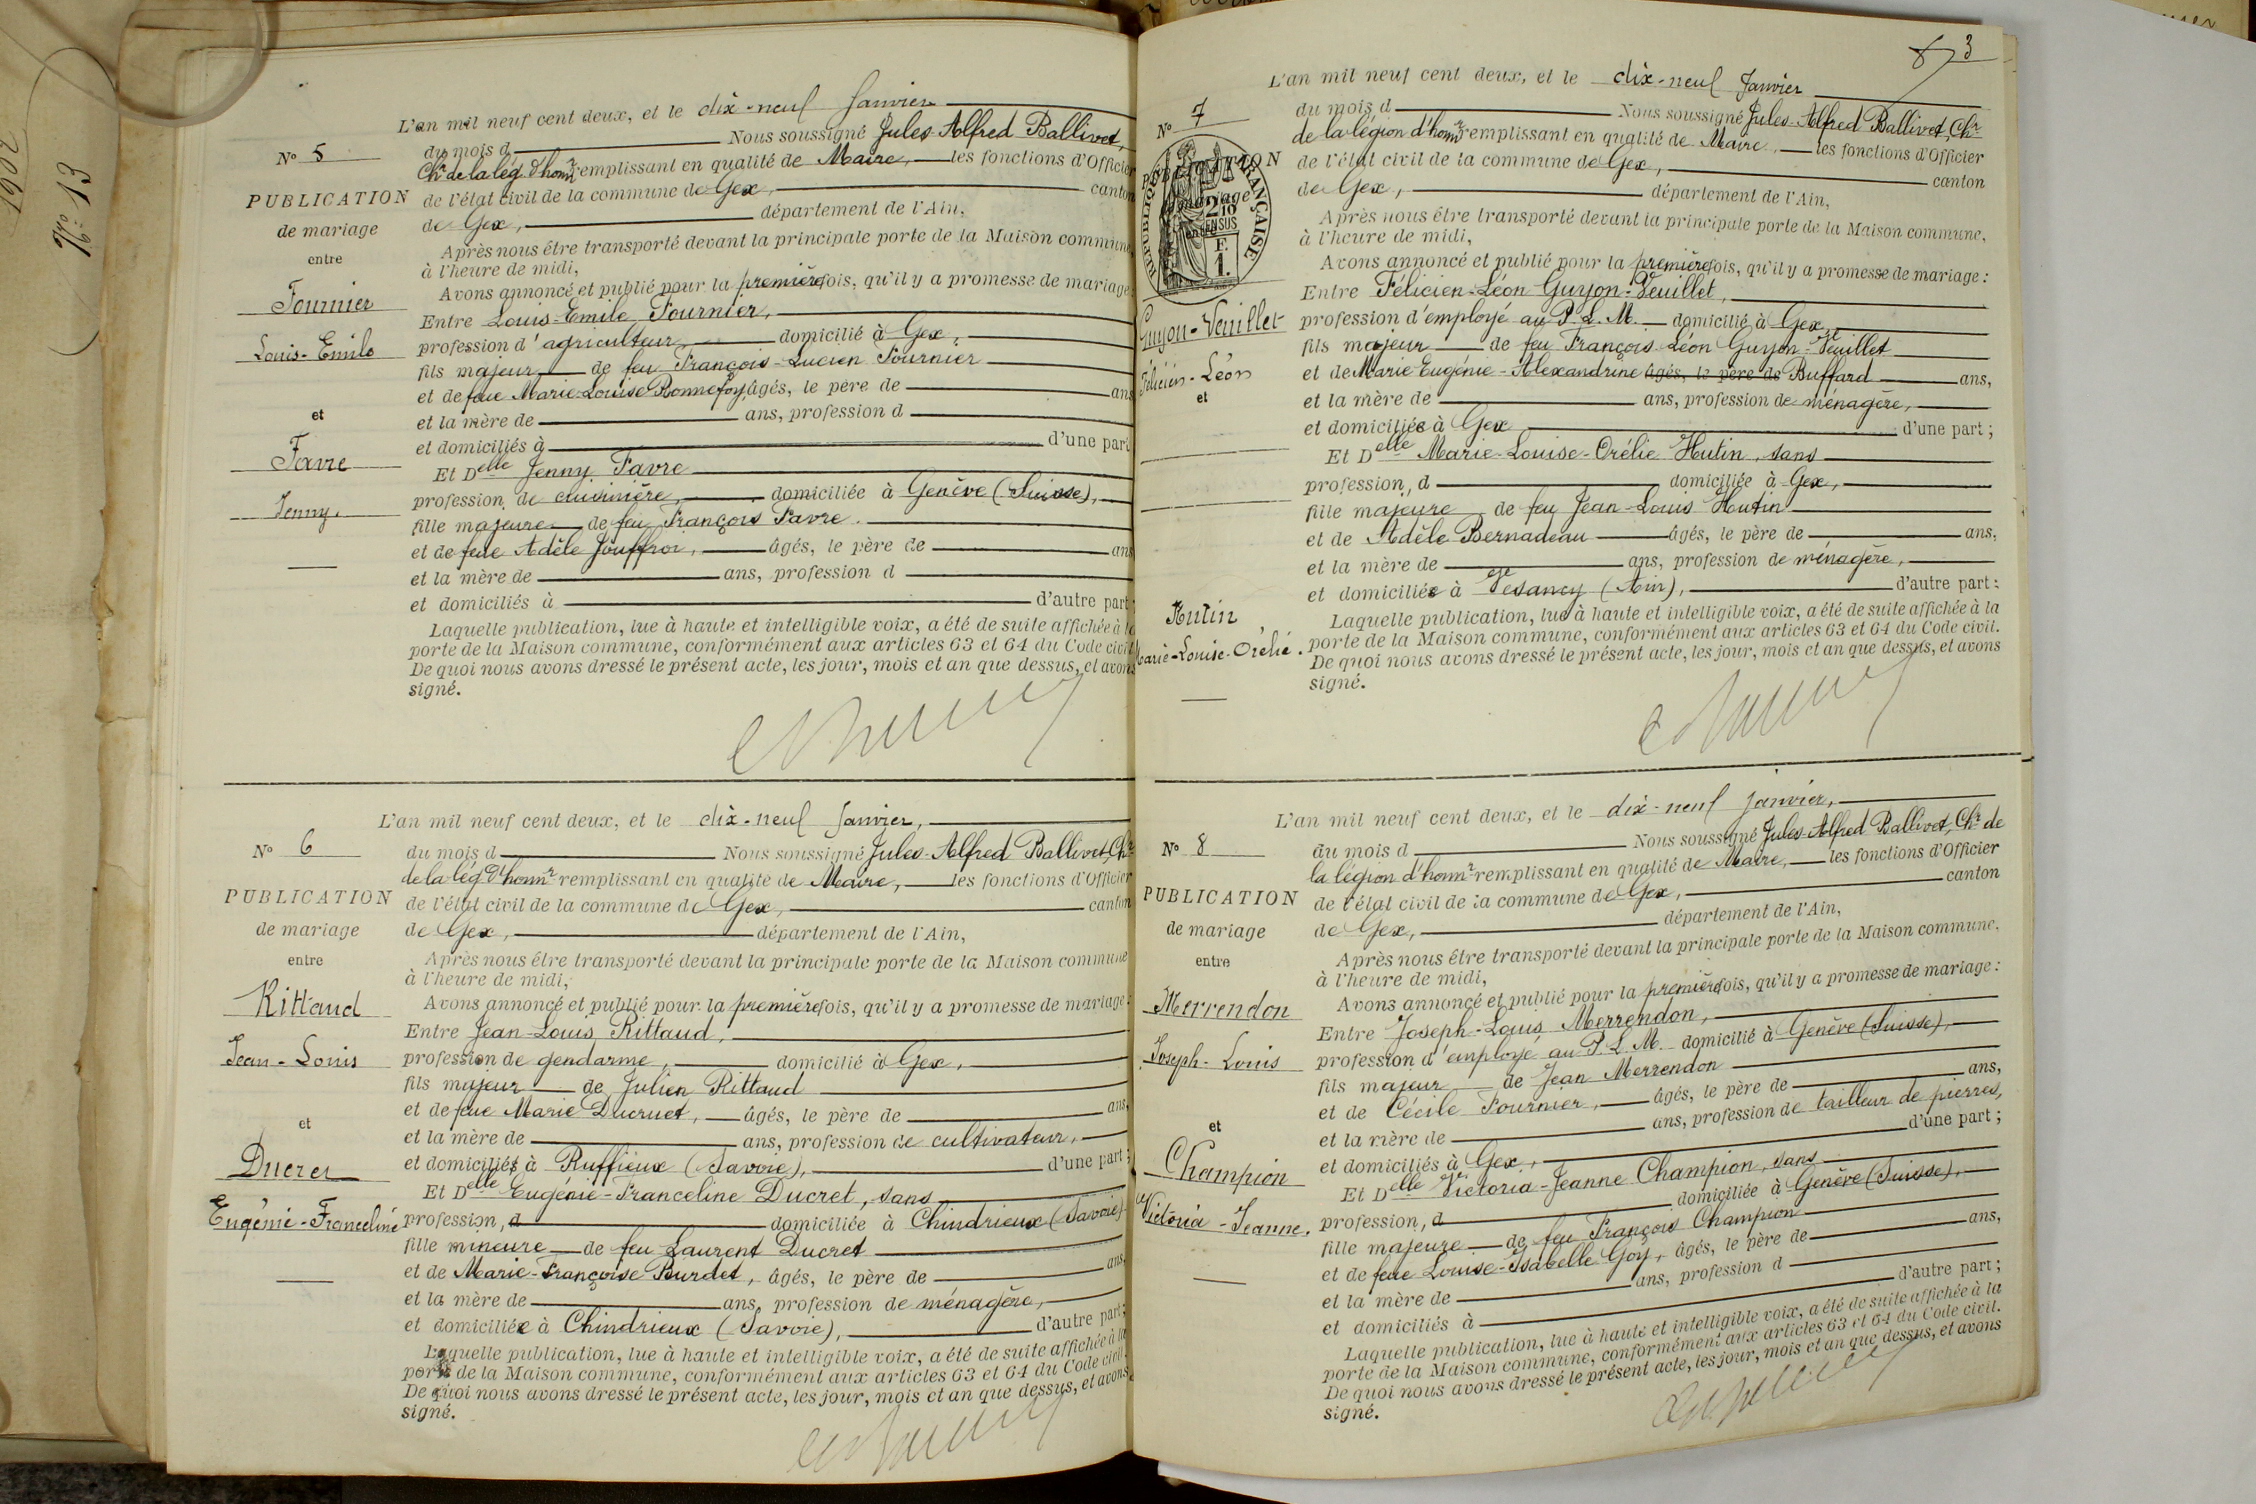 1902
N° 13
L'an mil neuf cent deux, et le dix-neuf Janvier
N° 5
du mois d Nous soussigné Jules-Alfred Ballivet,
Chr de la lég. d'honnr remplissant en qualité de Maire, les fonctions d'Officier
PUBLICATION
de l'état civil de la commune de Gex, canton
de mariage
de Gex, département de l'Ain,
entre
Après nous être transporté devant la principale porte de la Maison commune
à l'heure de midi,
Avons annoncé et publié pour la première fois, qu'il y a promesse de mariage
Fournier
Entre Louis-Emile Fournier,
Louis-Emile
profession d'agriculteur, domicilié à Gex,
fils majeur de feu François-Lucien Fournier
et de feue Marie-Louise Bonnefoy, âgés, le père de ans
et
et la mère de ans, profession d
et domiciliés à d'une part
Favre
Et Delle Jenny Favre
Jenny.
profession de cuisinière, domiciliée à Genève (Suisse),
fille majeure de feu François Favre.
et de feue Adèle Jouffroi, âgés, le père de ans
et la mère de ans, profession d
et domiciliés à d'autre part;
Laquelle publication, lue à haute et intelligible voix, a été de suite affichée à la
porte de la Maison commune, conformément aux articles 63 et 64 du Code civil.
De quoi nous avons dressé le présent acte, les jour, mois et an que dessus, et avons
signé.
L'an mil neuf cent deux, et le dix-neuf Janvier,
N° 6
du mois d Nous soussigné Jules-Alfred Ballivet, Chr
de la lég. d'honnr remplissant en qualité de Maire, les fonctions d'Officier
PUBLICATION
de l'état civil de la commune de Gex, canton
de mariage
de Gex, département de l'Ain,
entre
Après nous être transporté devant la principale porte de la Maison commune
à l'heure de midi,
Avons annoncé et publié pour la première fois, qu'il y a promesse de mariage:
Rittaud
Entre Jean-Louis Rittaud,
Jean-Louis
profession de gendarme, domicilié à Gex,
fils majeur de Julien Rittaud
et de feue Marie Ducruet, âgés, le père de ans,
et
et la mère de ans, profession de cultivateur,
et domiciliés à Ruffieux (Savoie), d'une part;
Ducret
Et Delle Eugénie-Franceline Ducret, sans
Eugénie-Franceline
profession, d domiciliée à Chindrieux (Savoie)
fille mineure de feu Laurent Ducret
et de Marie-Françoise Burdet, âgés, le père de ans,
et la mère de ans, profession de ménagère,
et domiciliée à Chindrieux (Savoie), d'autre part;
Laquelle publication, lue à haute et intelligible voix, a été de suite affichée à la
porte de la Maison commune, conformément aux articles 63 et 64 du Code civil.
De quoi nous avons dressé le présent acte, les jour, mois et an que dessus, et avons
signé.
3
L'an mil neuf cent deux, et le dix-neuf Janvier
N° 7
du mois d Nous soussigné Jules-Alfred Ballivet, Chr
de la légion d'honnr remplissant en qualité de Maire, les fonctions d'Officier
PUBLICATION
de l'état civil de la commune de Gex, canton
de mariage
de Gex, département de l'Ain,
entre
RÉPUBLIQUE FRANÇAISE
2/10
EN SUS
F.
1.
Après nous être transporté devant la principale porte de la Maison commune,
à l'heure de midi,
Avons annoncé et publié pour la première fois, qu'il y a promesse de mariage:
Guyon-Veuillet
Entre Félicien-Léon Guyon-Veuillet,
Félicien-Léon
profession d'employé au P. L. M. domicilié à Gex,
fils majeur de feu François Léon Guyon-Veuillet
et de Marie Eugénie-Alexandrine âgés, le père de Buffard ans,
et
et la mère de ans, profession de ménagère,
et domiciliée à Gex d'une part;
Et Delle Marie-Louise-Orélie Hutin, sans
profession, d domiciliée à Gex,
fille majeure de feu Jean-Louis Hutin
et de Adèle Bernadeau âgés, le père de ans,
et la mère de ans, profession de ménagère,
et domiciliée à Vesancy (Ain), d'autre part:
Hutin
Marie-Louise-Orélie.
Laquelle publication, lue à haute et intelligible voix, a été de suite affichée à la
porte de la Maison commune, conformément aux articles 63 et 64 du Code civil.
De quoi nous avons dressé le présent acte, les jour, mois et an que dessus, et avons
signé.
L'an mil neuf cent deux, et le dix-neuf Janvier,
N° 8
du mois d Nous soussigné Jules-Alfred Ballivet, Chr de
la légion d'honnr remplissant en qualité de Maire, les fonctions d'Officier
PUBLICATION
de l'état civil de la commune de Gex, canton
de mariage
de Gex, département de l'Ain,
entre
Après nous être transporté devant la principale porte de la Maison commune,
à l'heure de midi,
Avons annoncé et publié pour la première fois, qu'il y a promesse de mariage:
Merrendon
Entre Joseph-Louis Merrendon,
Joseph-Louis
profession d'employé au P. L. M. domicilié à Genève (Suisse),
fils majeur de Jean Merrendon
et de Cécile Fournier, âgés, le père de ans,
et
et la mère de ans, profession de tailleur de pierres,
et domiciliés à Gex, d'une part;
Champion
Et Delle Victoria-Jeanne Champion, sans
Victoria-Jeanne.
profession, d domiciliée à Genève (Suisse),
fille majeure de feu François Champion
et de feue Louise-Isabelle Goy, âgés, le père de ans,
et la mère de ans, profession d
et domiciliés à d'autre part;
Laquelle publication, lue à haute et intelligible voix, a été de suite affichée à la
porte de la Maison commune, conformément aux articles 63 et 64 du Code civil.
De quoi nous avons dressé le présent acte, les jour, mois et an que dessus, et avons
signé.